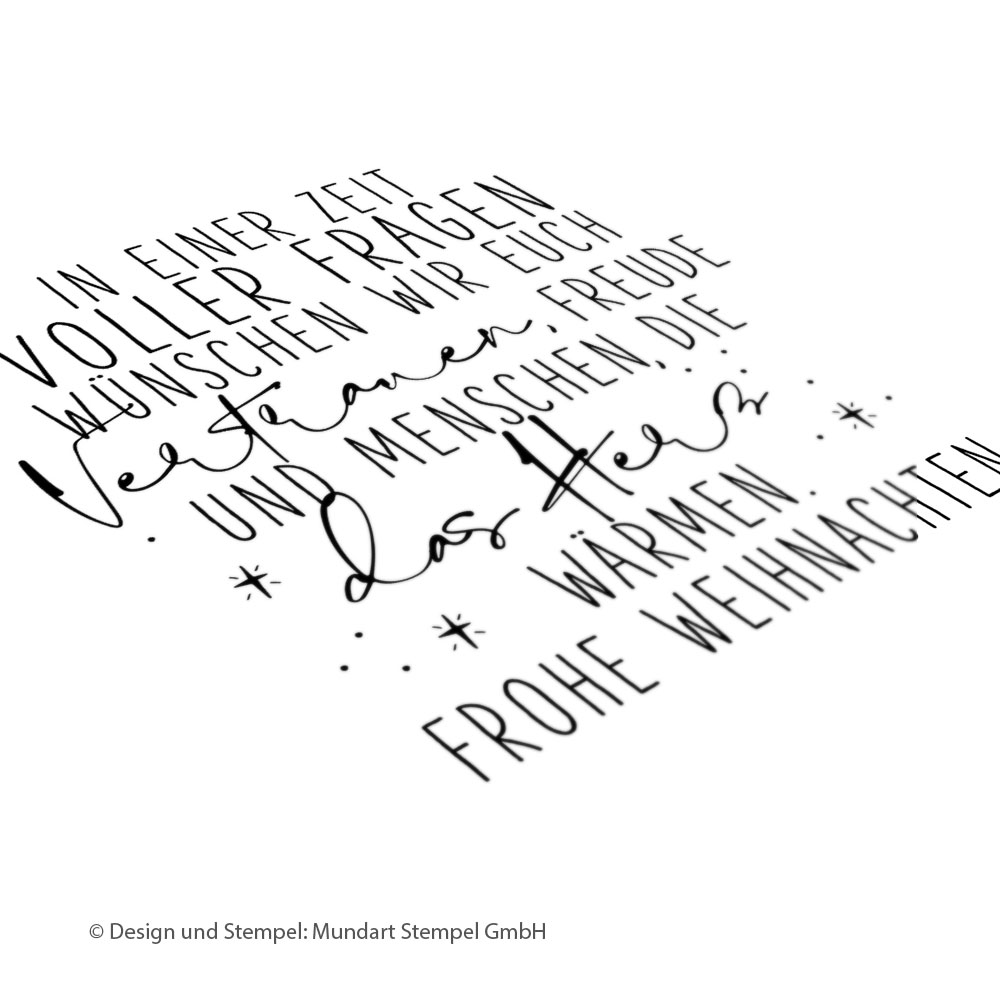 IN EINER ZEIT
VOLLER FRAGEN
WÜNSCHEN WIR EUCH
Vertrauen, FREUDE
UND MENSCHEN, DIE
das Herz
WÄRMEN.
FROHE WEIHNACHTEN
© Design und Stempel: Mundart Stempel GmbH